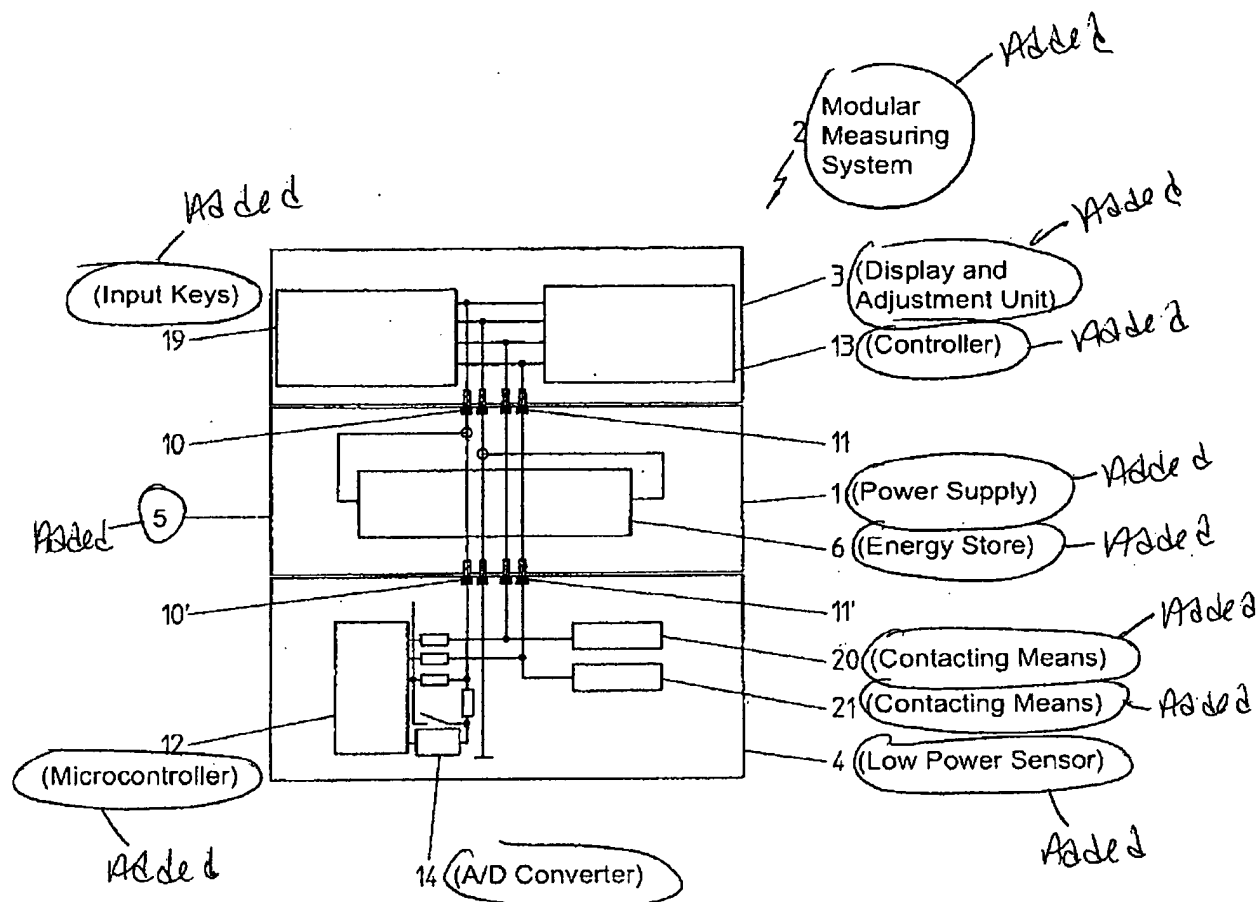 Added
2 Modular
Measuring
System
Added
Added
(Input Keys)
3 (Display and
Adjustment Unit)
19
13 (Controller)
Added
10
11
Added
1 (Power Supply)
Added 5
6 (Energy Store)
Added
10'
11'
Added
20 (Contacting Means)
21 (Contacting Means)
Added
12
(Microcontroller)
4 (Low Power Sensor)
Added
Added
14 (A/D Converter)